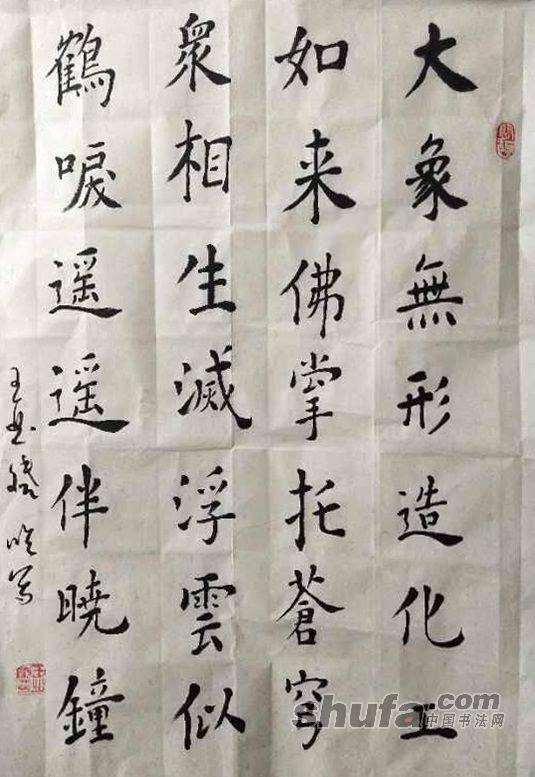 大象無形造化工
如来佛掌托蒼穹
衆相生滅浮雲似
鶴唳遥遥伴曉鐘
shufa.com
中国书法网